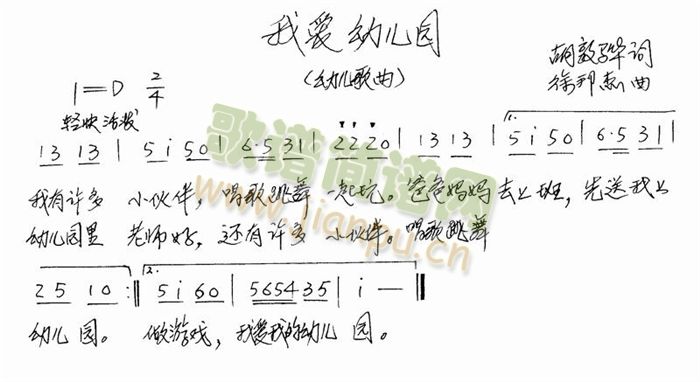 我爱幼儿园
(幼儿歌曲)
胡敦骅词
徐邦杰曲
1=D 2/4
轻快活泼
13 13 | 5 i 50 | 6·5 31 | 22 20 | 13 13 | 1. 5 i 50 | 6·5 31 |
我有许多 小伙伴, 唱歌跳舞 一起玩。爸爸妈妈 去上班, 先送我上
幼儿园里 老师好, 还有许多 小伙伴。唱歌跳舞
25 10 :|| 2. 5 i 60 | 5654 35 | i — ||
幼儿 园。 做游戏, 我爱我的幼儿 园。
歌谱简谱网
www.jianpu.cn